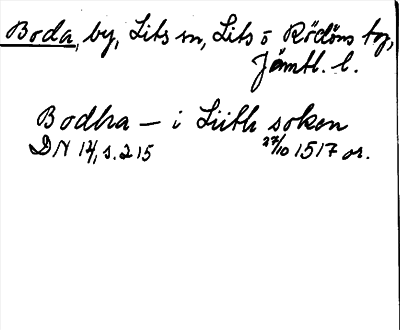 Boda, by, Lits sn, Lits o Rödöns tg,
Jämtl. l.
Bodha — i Liith soken
DN 14, s. 215 27/10 1517 or.